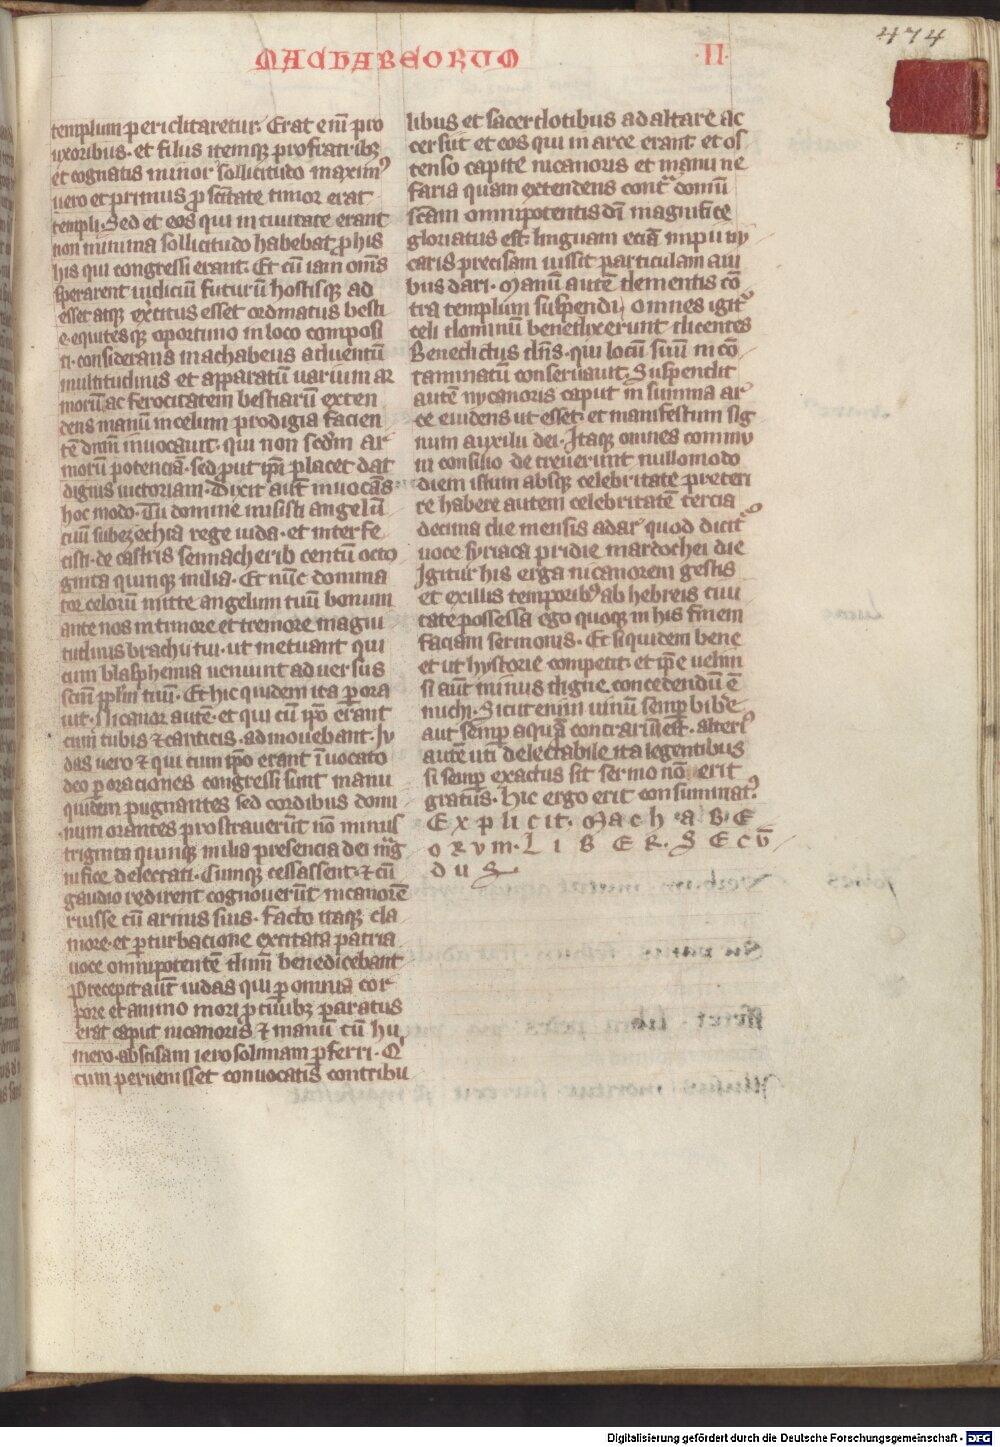 474
MACHABEORUM
·II·
templum periclitaretur. Erat eni͞ pro
uxoribus· et filiis itemq; pro fratribꝫ
et cognatis minor sollicitudo maxim᾿
uero et primus ꝓ sc̄itate timor erat
templi· Sed et eos qui in ciuitate erant
non minima sollicitudo habebat ꝓ his
his qui congressi erant· Et cū iam om̄s
sperarent iudiciū futurū hostisq; ad
esset atq; exercitus esset ordinatus besti
e· equitesq; oportuno in loco composi
ti· considerans machabeus aduentū
multitudinis et apparatū uarium ar
morū ac ferocitatem bestiarū exten
dens manū in celum prodigia facien
tē dn̄m inuocauit· qui non scd̄m ar
morū potenciā· sed ꝓut ip̄i placet dat
dignis uictoriam· Dixit aūt inuocās
hoc modo· Tu domine misisti angelū
tuū sub ezechia rege iuda· et interfe
cisti· de castris sennacherib centū octo
ginta quinq; milia· Et nūc domina
tor celorū mitte angelum tuū bonum
ante nos in timore et tremore magni
tudinis brachii tui· ut metuant qui
cum blasphemia ueniunt aduersus
sc̄m pp̄lm tuū· Et hic quidem ita ꝑora
uit· Nicanor autē· et qui cū ip̄o erant
cum tubis ⁊ canticis· admouebant· Iu
das uero ⁊ qui cum ip̄o erant īuocato
deo ꝑ oraciones congressi sunt manu
quidem pugnantes sed cordibus domi
num orantes prostrauerūt nō minus
triginta quinq; milia presencia dei mag
nifice delectati· Cumq; cessassent· ⁊ cū
gaudio redirent cognouerūt nicanorē
ruisse cū armis suis· facto itaq; cla
more· et ꝑturbacione excitata patria
uoce omnipotentē dn̄m benedicebant
Precepit aūt iudas qui ꝑ omnia cor
pore et animo mori ꝓ ciuibꝫ paratus
erat caput nicanoris ⁊ manū cū hu
mero· abscisam ierosolimam ꝑferri· Q᾿
cum peruenisset conuocatis contribu
libus et sacerdotibus ad altare ac
cersiit et eos qui in arce erant· et os
tenso capite nicanoris et manu ne
faria quam extendens contra domū
sc̄am omnipotentis dī magnifice
gloriatus est· linguam eciā impii ny
canris precisam iussit particulam aui
bus dari· Manū autē dementis cō
tra templum suspendi, omnes igit᾿
celi dominū benedixerunt dicentes
Benedictus dn̄s· qui locū suū incō
taminatū conseruauit· Suspendit
autē nycanoris caput in summa ar
ce euidens ut esset· et manifestum sig
num auxilii dei· Itaq; omnes commu
ni consilio decreuerunt nullomodo
diem istum absq; celebritate preteri
re habere autem celebritatē tercia
decima die mensis adar quod dicit᾿
uoce syriaca pridie mardochei die
Igitur his erga nicanorem gestis
et ex illis temporibꝰ ab hebreis ciui
tate possessa ego quoq; in his finem
faciam sermonis· Et siquidem bene
et ut hystorie competit· et ip̄e uelim
si aūt minus digne· concedendū ē
michi· Sicut enim uinū semꝑ bibe
aut semꝑ aquā contrariū est· alter᾿
autē uti delectabile ita legentibus
si semꝑ exactus sit sermo nō erit
gratus· hic ergo erit consummat᾿
Explicit· Machabe
orum· LIBER· SECŪ
dus